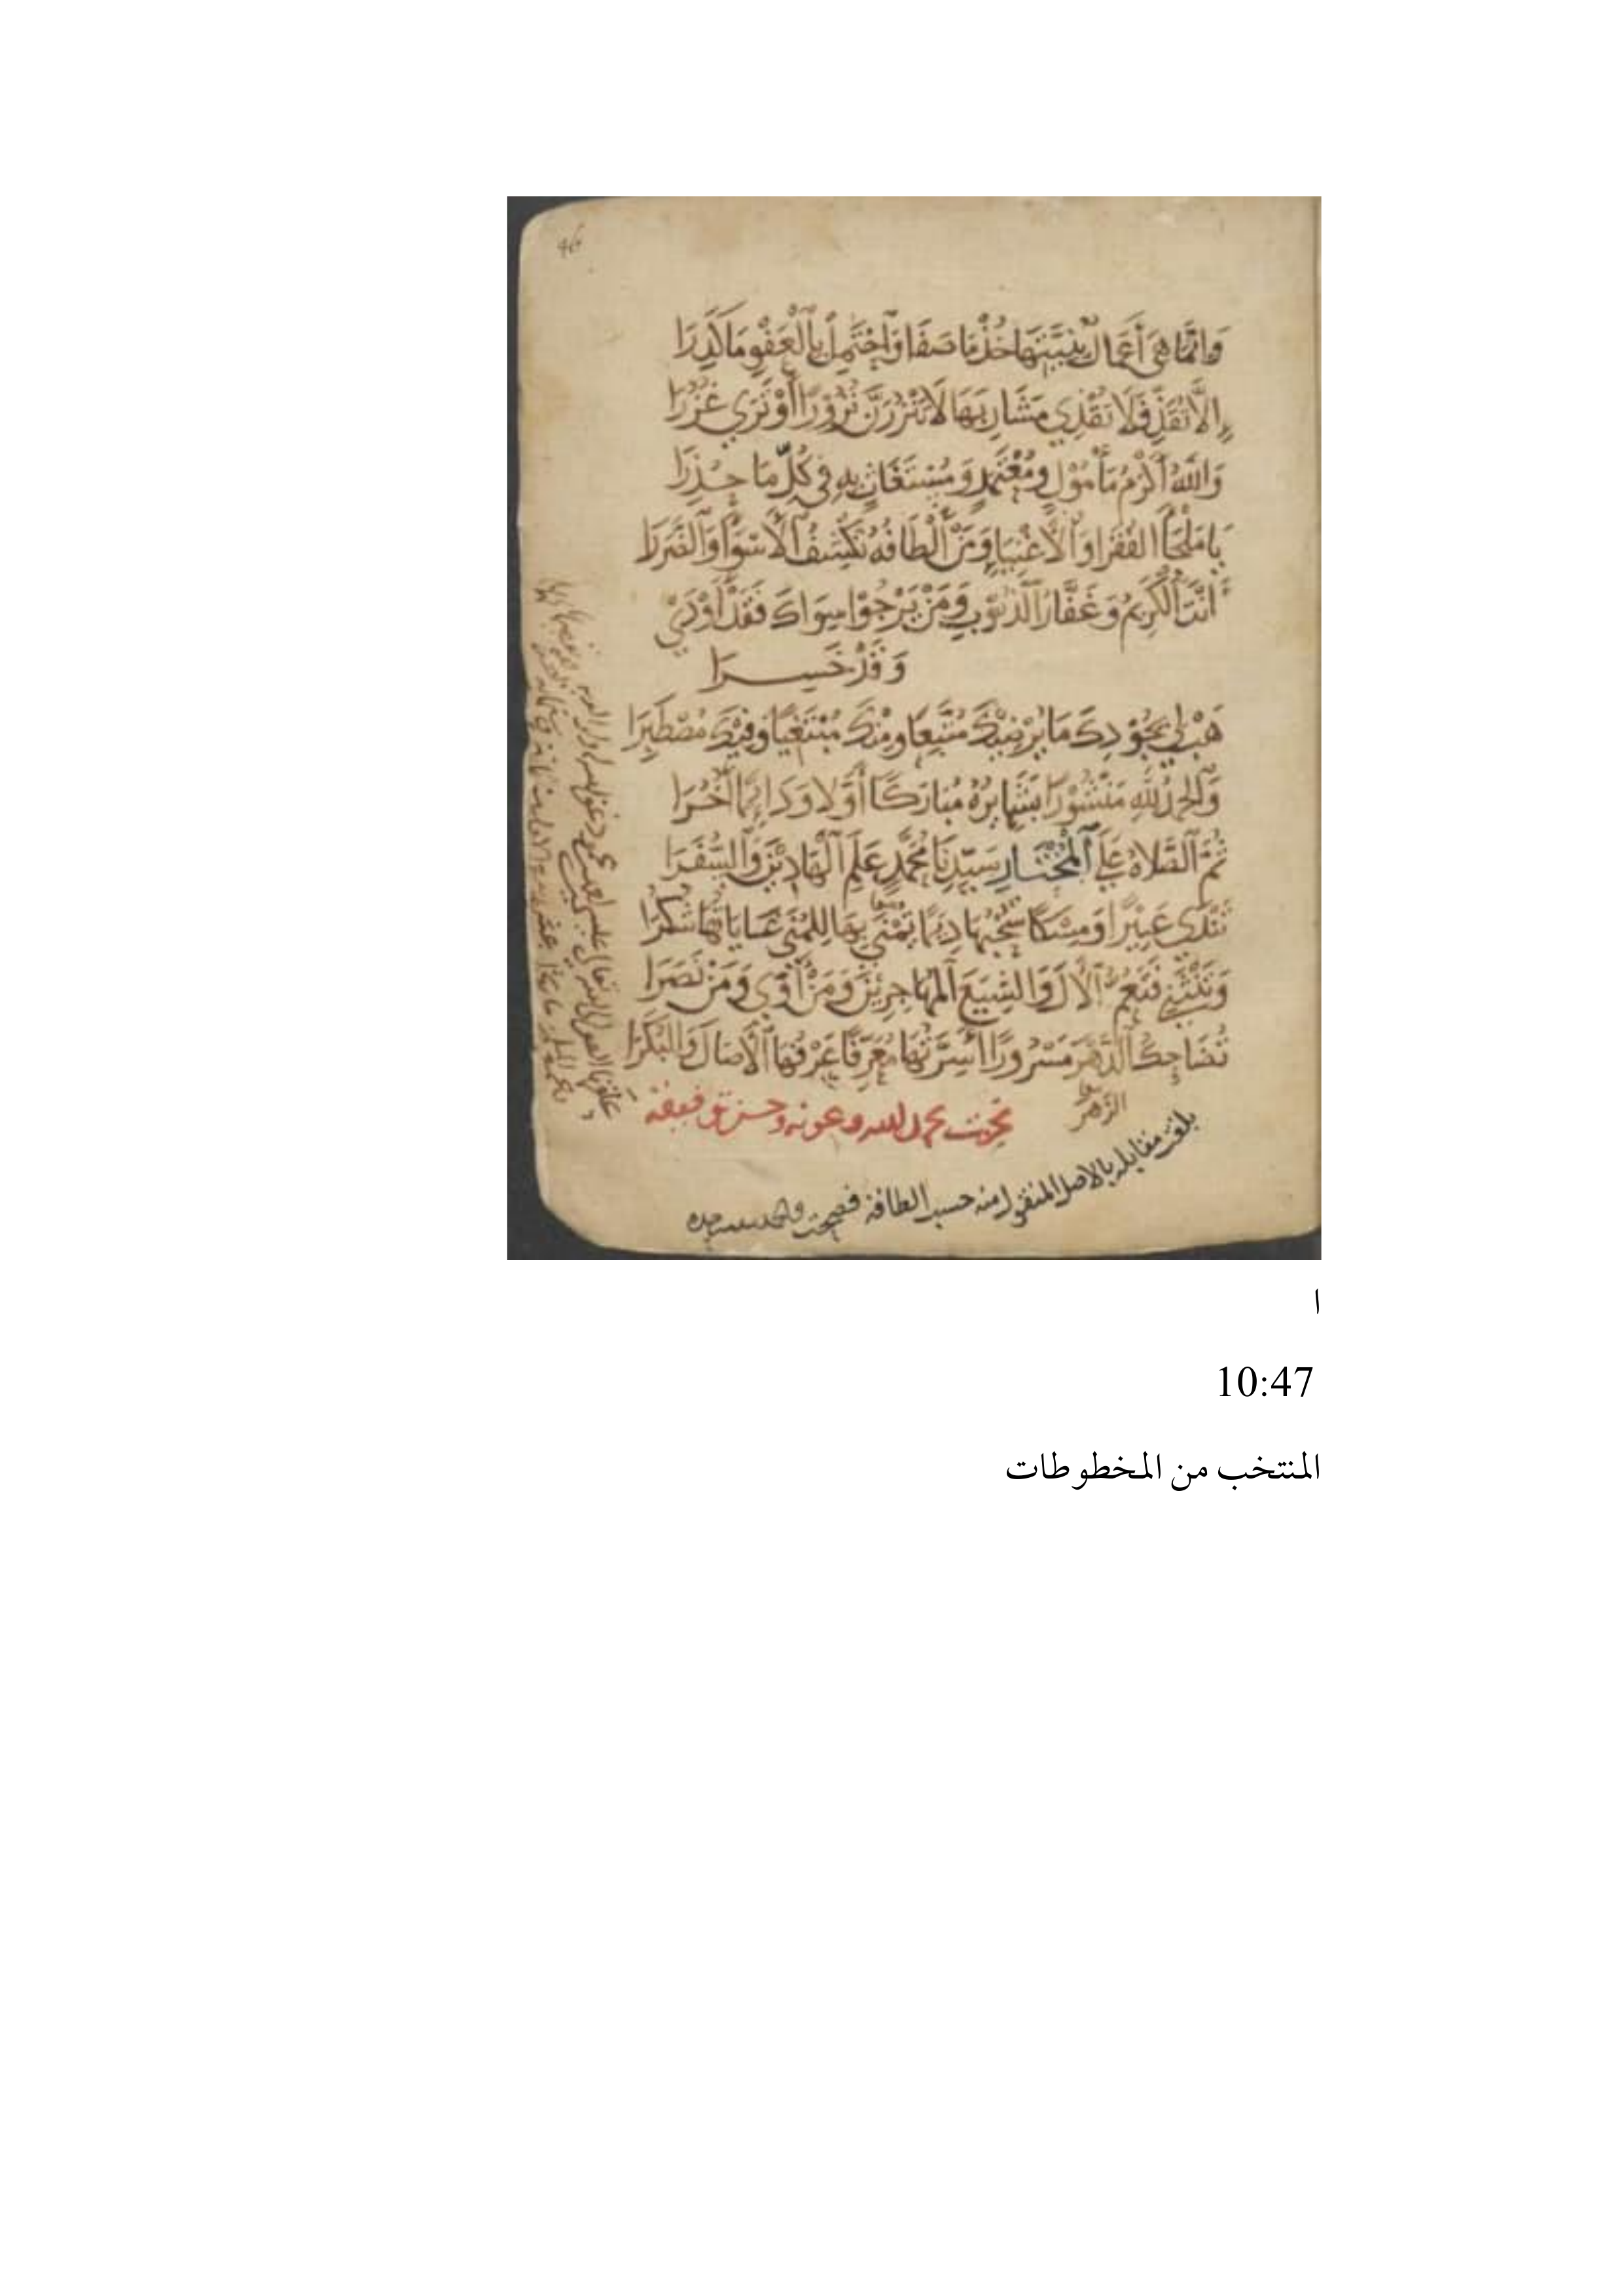 46
وَاِنَّمَا هِيَ أَعْمَالٌ بِنِيَّتِهَا خُذْ مَا صَفَا وَاحْتَمِلْ بِالْعَفْوِ مَا كَدِرَا
إِلَّا تُقَذِّ فَلَا تُقْذِي مَشَارِبَهَا لَا تَنْزُرَنَّ نَزُوْرًا أَوْ تَرَي غُزُرَا
وَاللّٰهُ أَكْرَمُ مَأْمُوْلٍ وَمُعْتَمَدٍ وَمُسْتَغَاثٍ بِهِ فِي كُلِّ مَا حُذِرَا
يَا مَلْجَأَ الْفُقَرَا وَالْأَغْنِيَاءِ وَمَنْ أَلْطَافُهُ تَكْشِفُ الْأَسْوَاءَ وَالضَّرَرَا
أَنْتَ الْكَرِيْمُ وَغَفَّارُ الذُّنُوْبِ وَمَنْ يَرْجُوْا سِوَاكَ فَقَدْ أَوْدَيْ
وَقَدْ خَسِرَا
هَبْ لِي بِجُوْدِكَ مَا يُرْضِيْكَ مُتَّبِعًا وَمِنْكَ مُبْتَغِيًا وَفِيْكَ مُصْطَبِرَا
وَالْحَمْدُ لِلّٰهِ مَنْشُوْرًا بَشَايِرُهُ مُبَارَكًا أَوَّلًا وَدَائِمًا أُخُرَا
ثُمَّ الصَّلَاةُ عَلَي الْمُخْتَارِ سَيِّدِنَا مُحَمَّدٍ عَلَمِ الْهَادِيْنَ وَالسُّفَرَا
تَنْدَي عَبِيْرًا وَمِسْكًا سُحْبُهَا دِيَمًا تُمْنَي بِهَا لِلْمُنَي غَايَاتُهَا شُكُرَا
وَتَنْثَنِي فَتَعُمُّ الْآلَ وَالشِّيَعَ الْمُهَاجِرِيْنَ وَمَنْ آوَي وَمَنْ نَصَرَا
تُضَاحِكُ الدَّهْرَ مَسْرُوْرًا أَسِرَّتُهَا مُعَرِّفًا عَرْفُهَا الْآصَالَ وَالْبُكَرَا
الزهر
نجزت بحمد الله وعونه وحسن توفيقه
بلغت مقابلة بالاصل المنقول منه حسب الطاقة فصحت والحمد لله وحده
ا
10:47
المنتخب من المخطوطات